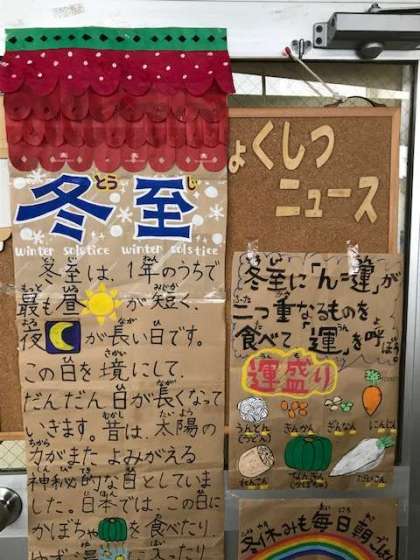 ょくしつ
ニュース
冬至
とう じ
winter solstice winter solstice
冬至は、1年のうちで
最も昼が短く、
夜が長い日です。
この日を境にして、
だんだん日が長くなって
いきます。昔は、太陽の
力がまたよみがえる
神秘的な日としていま
した。日本では、この日に
かぼちゃを食べたり、
冬至に「ん=運」が
二つ重なるものを
食べて「運」を呼ぼう。
運盛り
うんとん
(うどん)
きんかん
ぎんなん
にんじん
れんこん
なんきん
(かぼちゃ)
冬休みも毎日朝ごはん